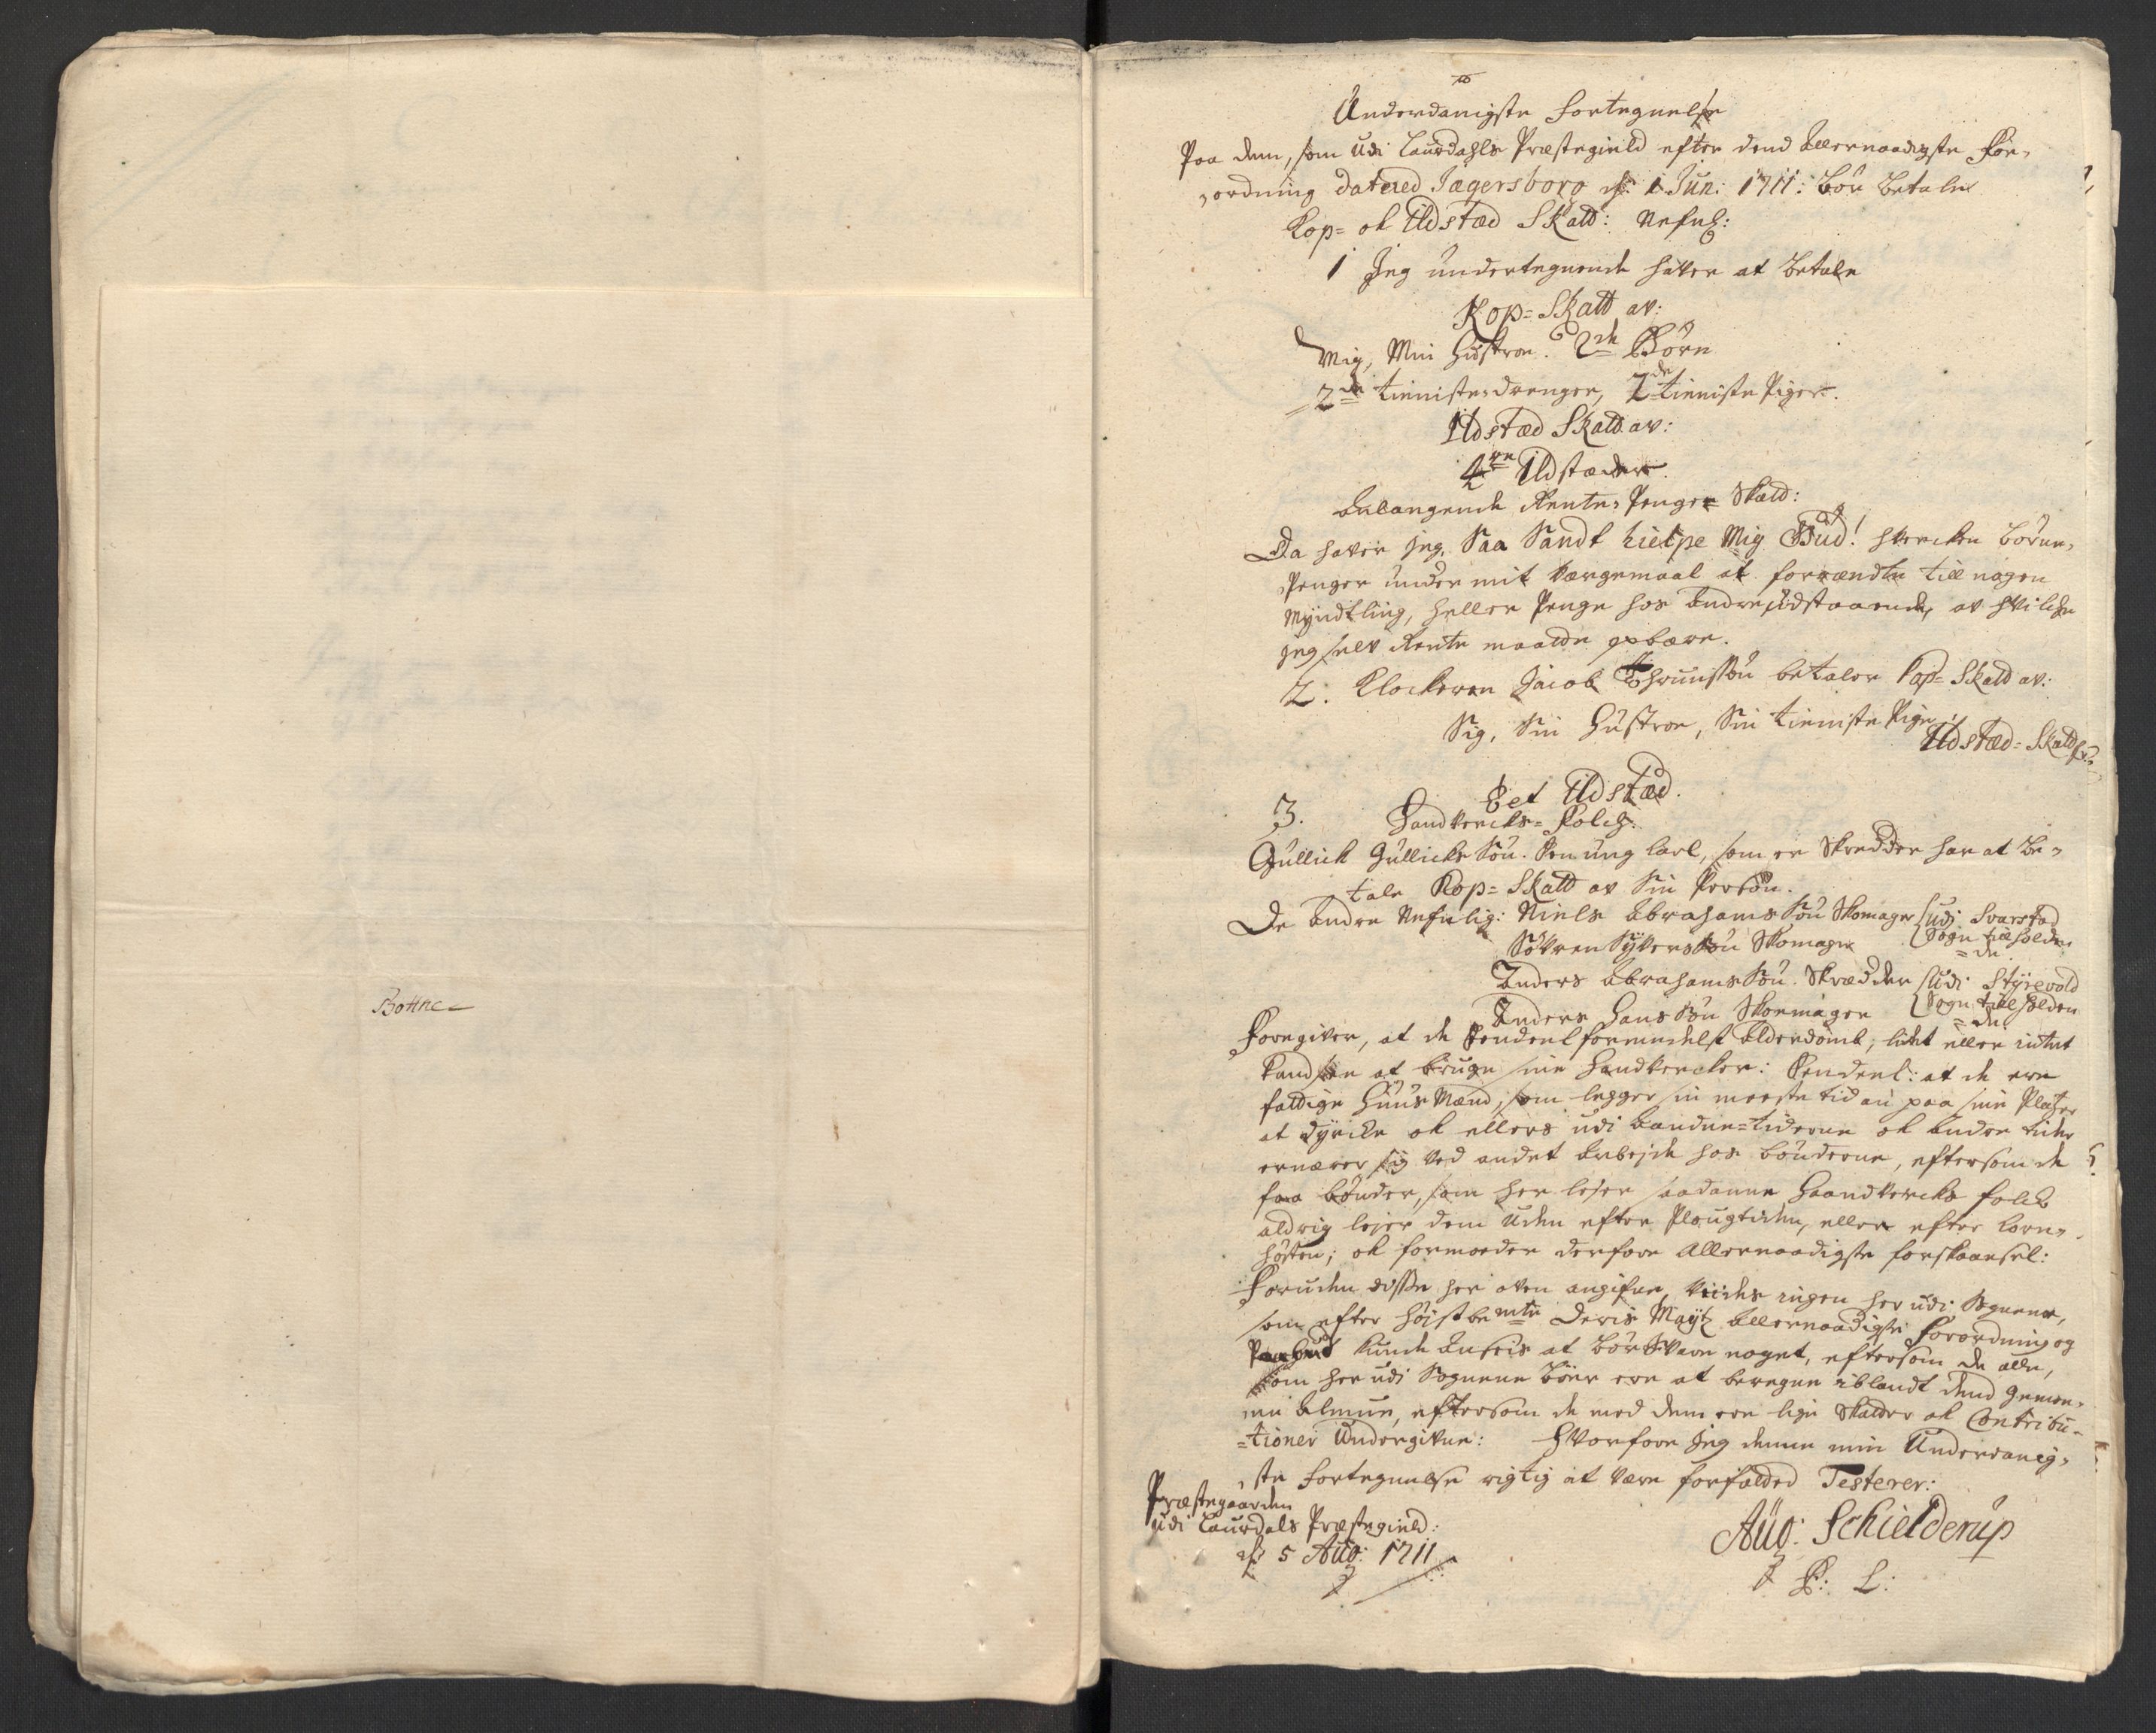 Bonne
Underdanigste Fortegnelse
Paa dem, som Udi Laurdahls Præstegield efter dend Allernaadigste For-
ordning datered Jægersborg d. 1 Jun: 1711: bør betale
Kop= ok Ildstæd Skatt: Nefnl:
1 Jeg undertegnende haver at betale
Kop=Skatt av:
Mig, Min Hustroe. 2de Børn
2de tieniste drenger, 2de tieniste Piger.
Ildstæd Skatt av:
4re Ildstæder.
Belangende Rente-Penger Skatt:
Da haver jeg, Saa Sandt hielpe Mig Gud! hvercken børne-
Penger under mit Værgemaal at forrændte till nogen
Myndtling, heller Penge hos andre udstaaende, av hvilcke
jeg selv Rente maatte opbære.
2. Klockeren Jacob betaler Kop=Skatt av:
Sig, Sin Hustroe, Sin tieniste Pige
Ildstæd=Skatt
Eet Ildstæd.
3. Handvercks=Folck:
Gullich Gullichs Søn. Een ung karl, som er Skredder har at be-
tale Kop=Skatt av Sin Person.
De andre Nefnlig: Niels Abrahams Søn Skomager udi Svarstad
Sogn till holden-
=de
Søvren Syvers Søn Skomager
Anders Abrahams Søn. Skrædder udi Styrevold
Sogn till holden
=de
Anders Hans Søn Skomager
Foregiver, at de Eendeel formedelst Alderdomb, lidet eller intet
kand see at bruge sine Handvercker: Eendeel: at de ere
fattige Huus Mænd, som legger sin meeste tid an paa sine Platzer
at dyrcke ok ellers udi tiderne ok andre tider
ernærer sig ved andet Arbejde hos bønderne, eftersom de
faa bønder, som her lejer saadanne Haandvercks folck
aldrig lejer dem uden efter Plougtiden, eller efter korn-
høsten; ok formoeder derfore Allernaadigste forskaansel:
Foruden disse her oven angifne, Vides ingen her udi Sognene,
som efter højstbemte Deris Maytz Allernaadigste Forordning og
Paabud kunde ansees at bør Svare noget, eftersom de alle,
som her udi Sognene boer ere at beregne iblandt dend gemee-
ne Almue, eftersom de med dem ere lige Skatter ok Contribu-
=tioner Undergivne: Hvorfore Jeg denne min Underdanig-
ste Fortegnelse rigtig at være forfatted Testerer:
Præstegaarden
Udi Laurdals Præstegield:
d. 5 Aug: 1711
Aug: Schielderup
P: L: